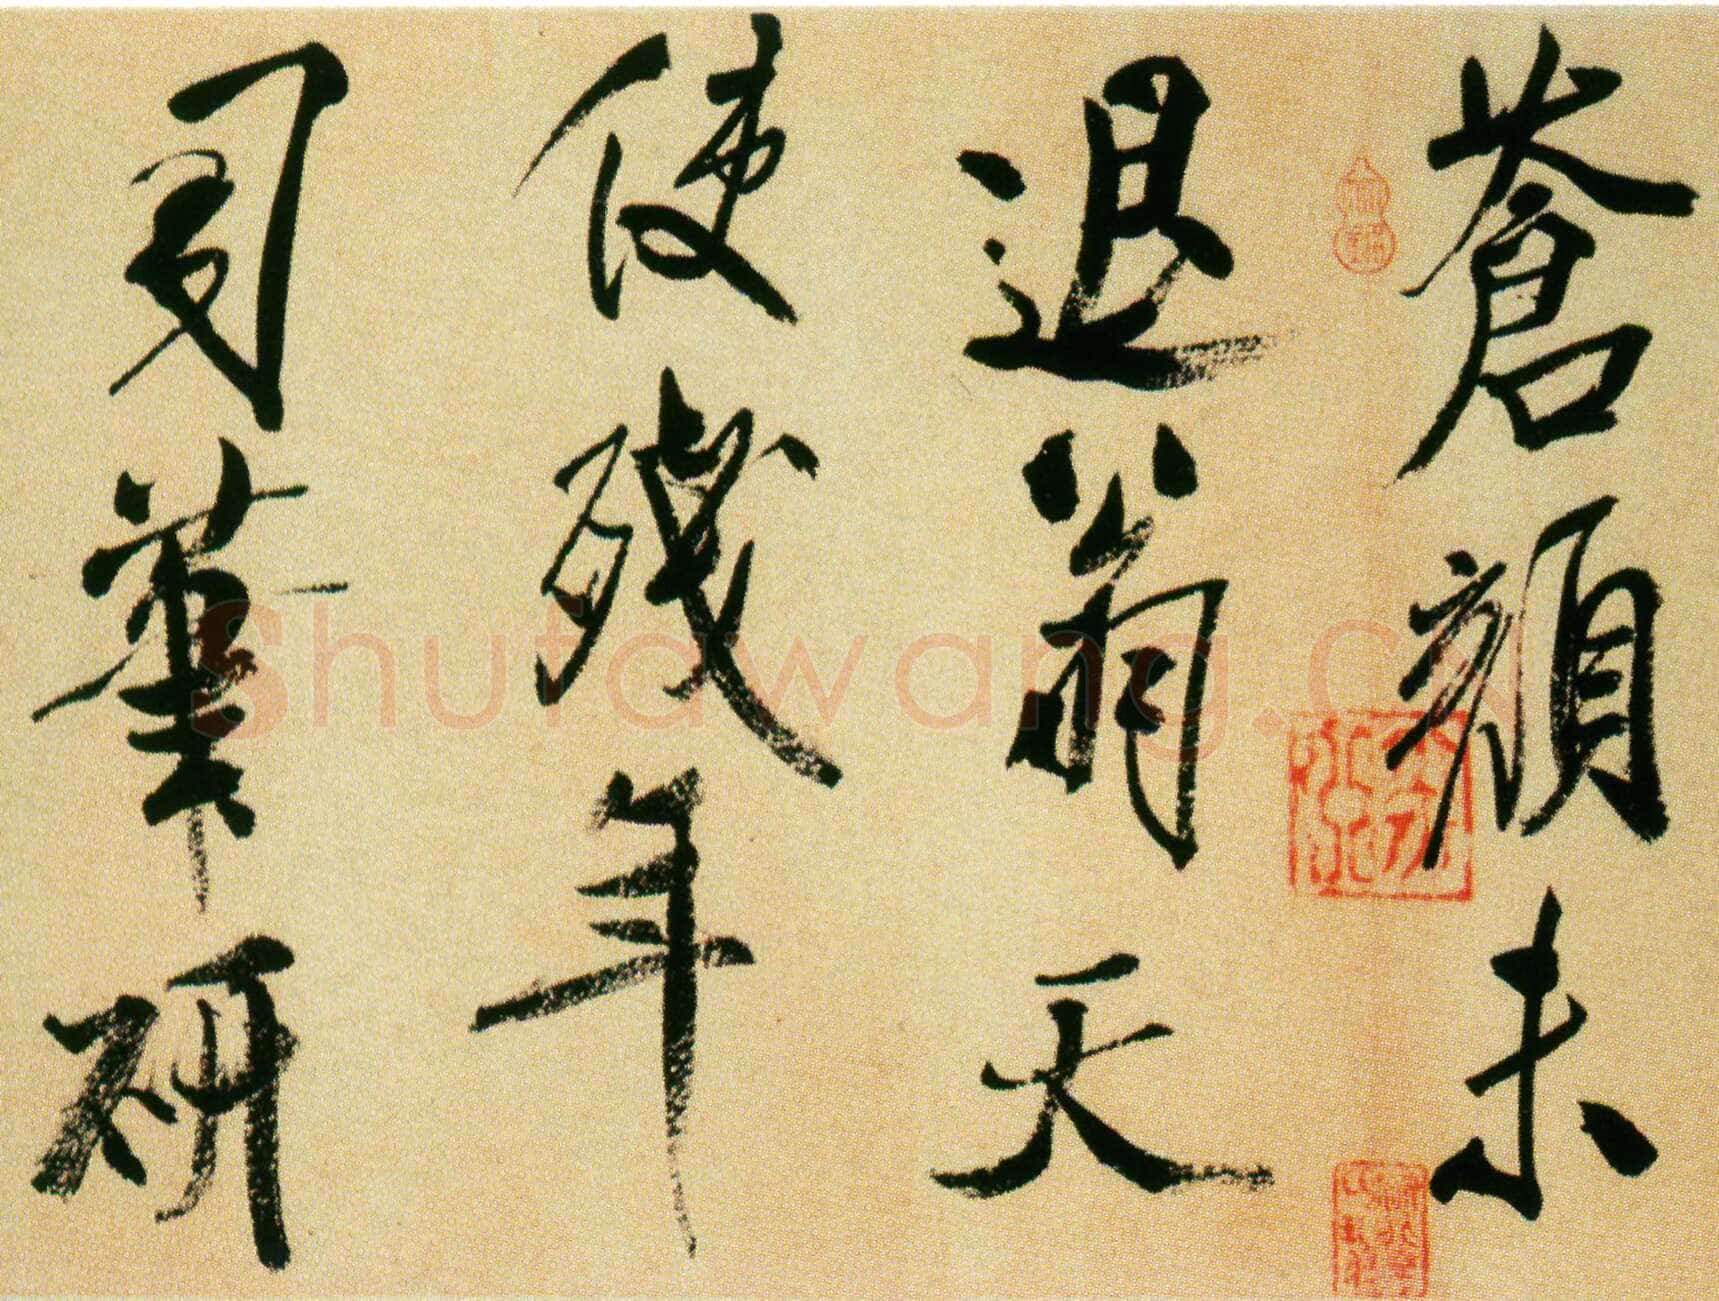 蒼顔未
退翁天
使殘年
司筆研
Shufawang.cn